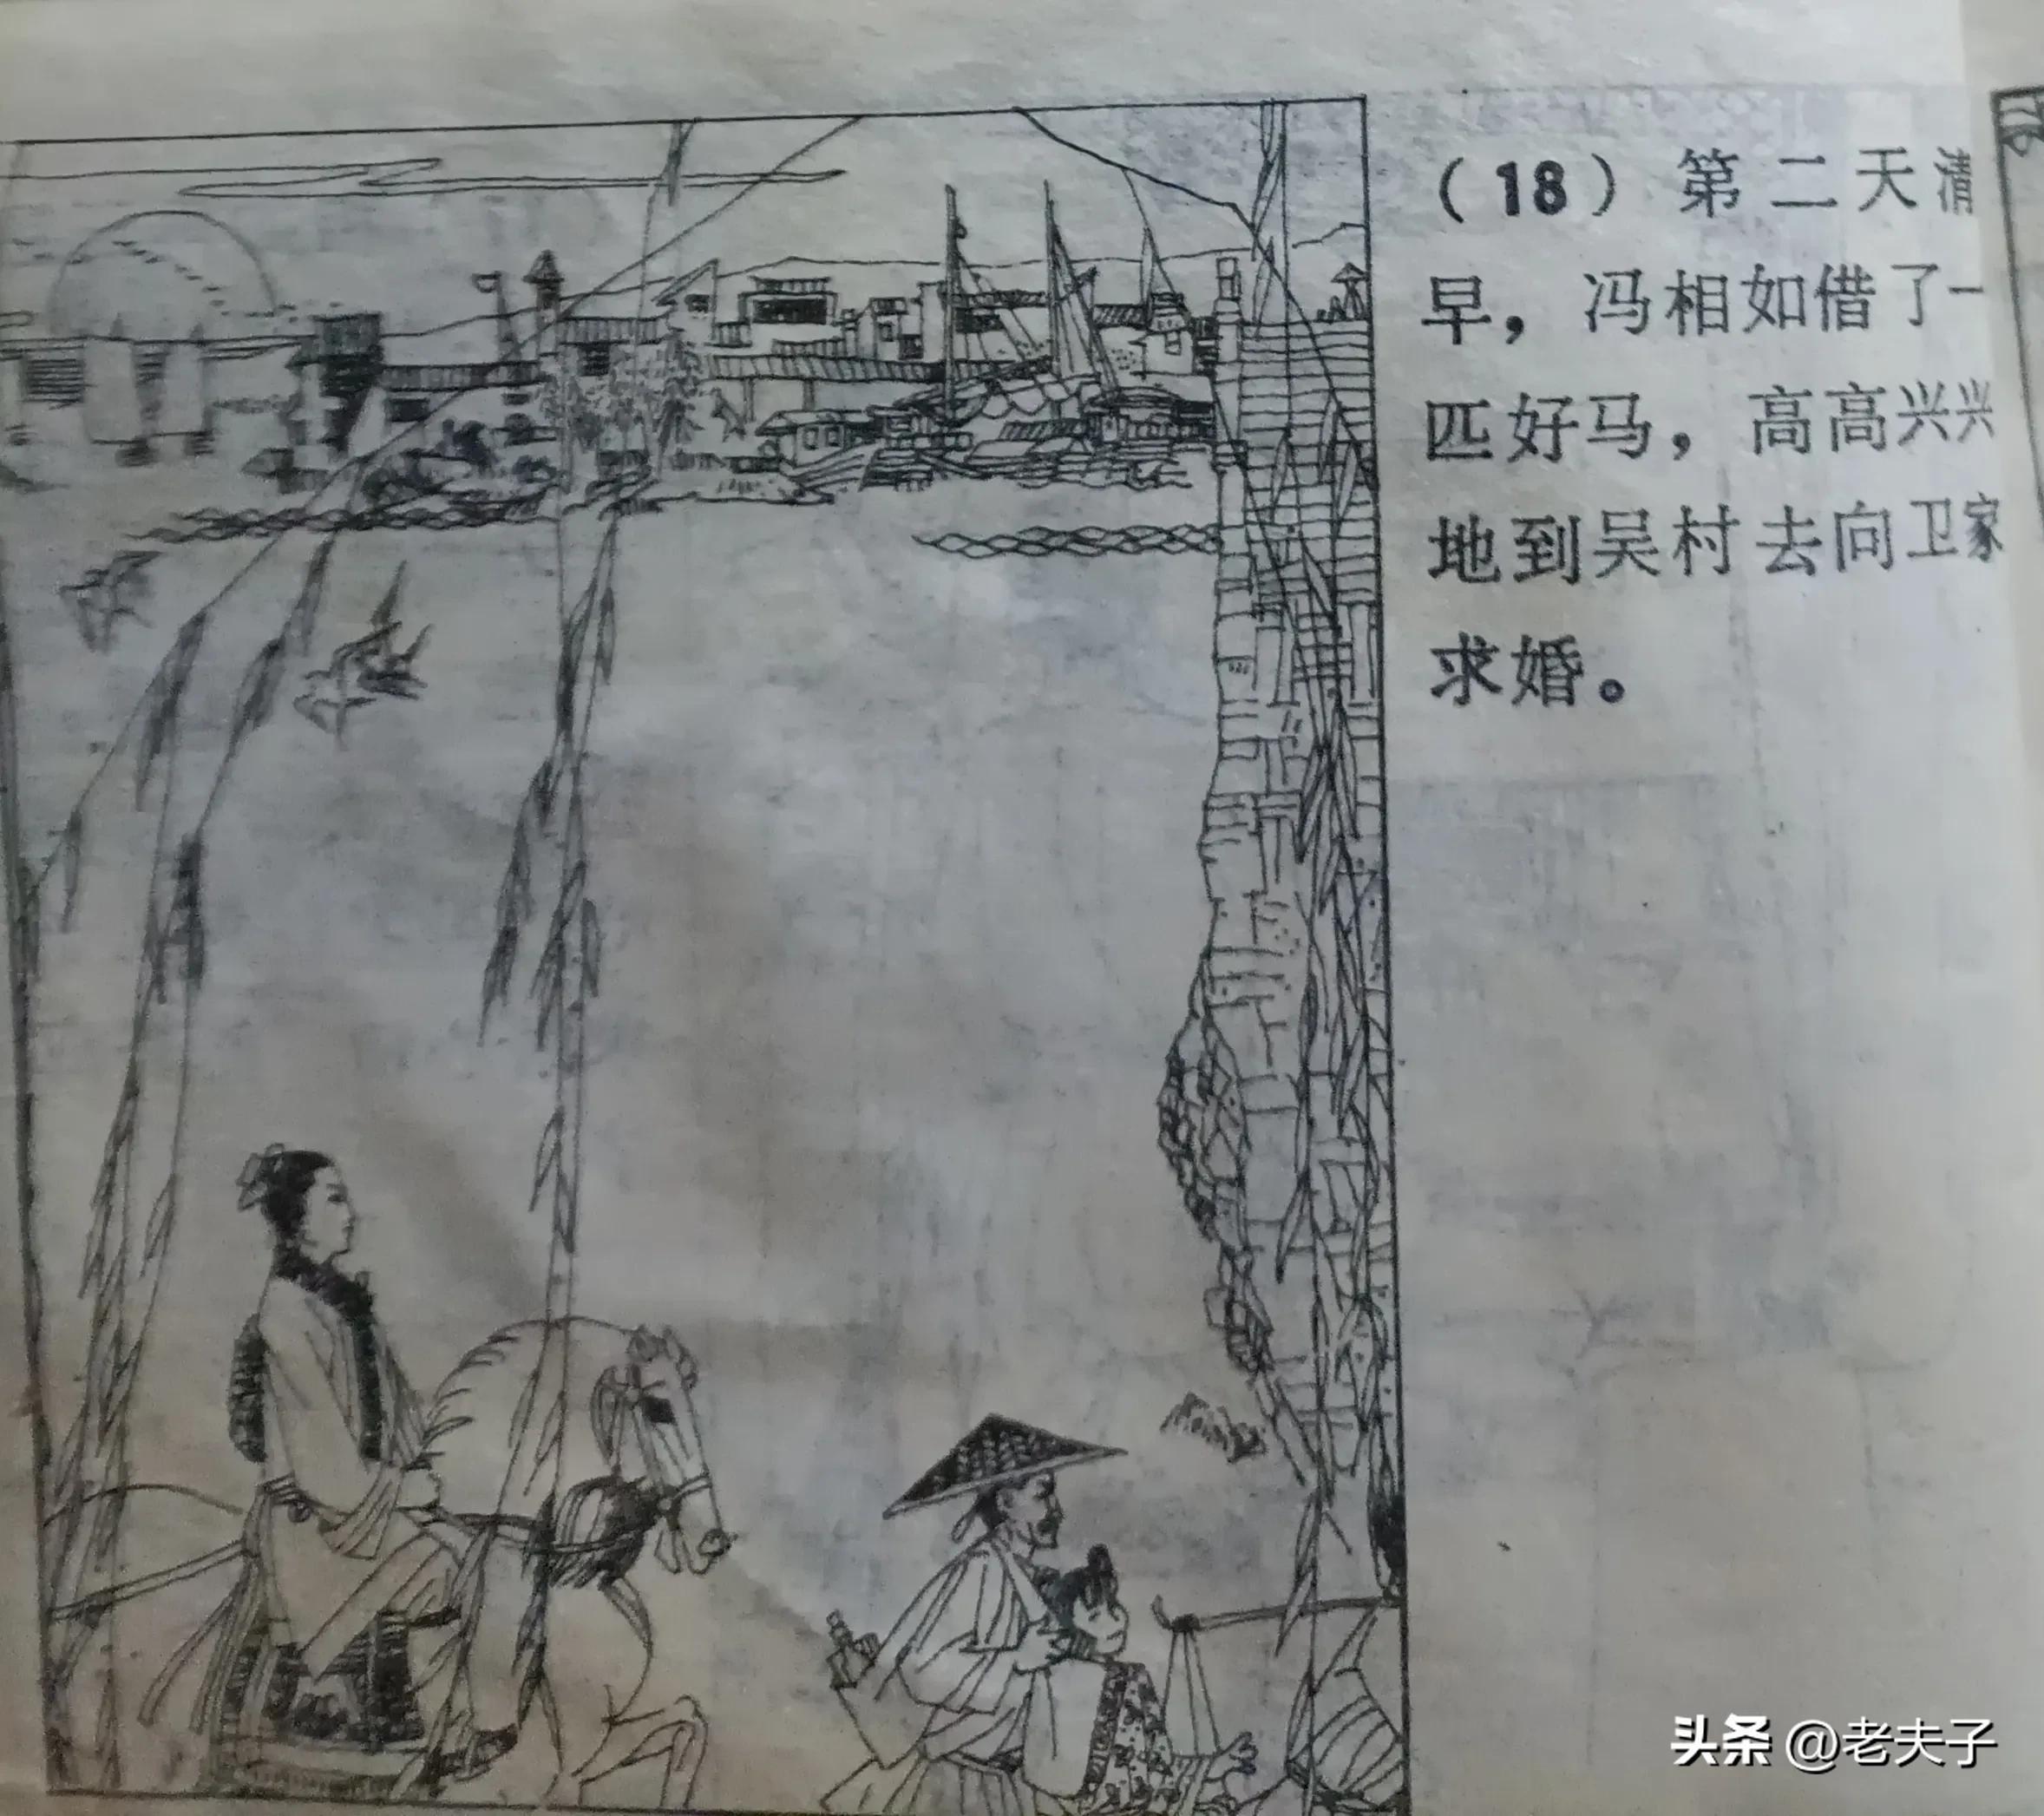 （18）第二天清
早，冯相如借了一
匹好马，高高兴兴
地到吴村去向卫家
求婚。
头条 @老夫子